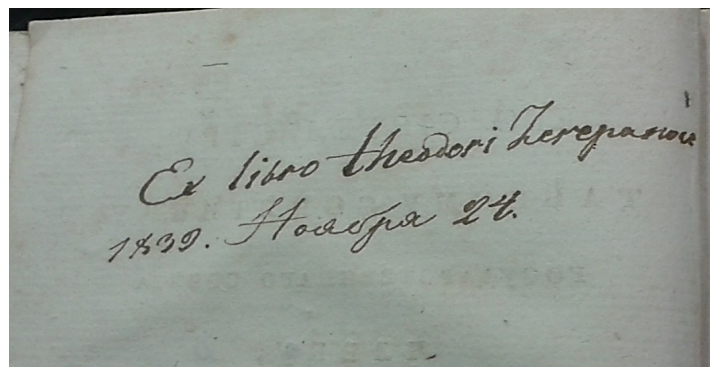 Ex libro theodori Zerepanow
1839. Ноября 24.